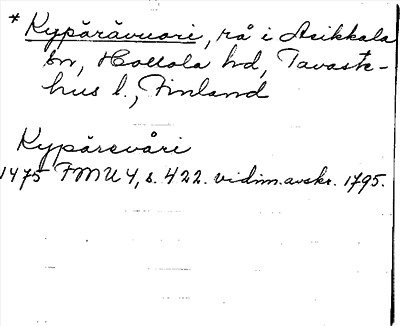 * Kypärävuori, rå i Asikkala
sn, Hollola hd, Tavaste-
hus l., Finland
Kypärevåri
1475 FMU 4, s. 422. vidim.avskr. 1795.